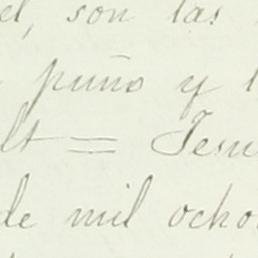 el, son las
puño y l
lt = Jesu
de mil ocho